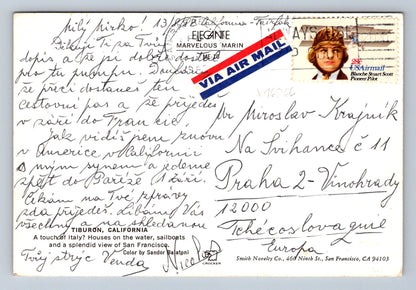 Milý Mirko! 13
ELEGANTE
MARVELOUS MARIN
Děkuji Ti za Tvůj
dopis a že jsi dobře dostal
pro tu pumpu. Doufám
že přeci dostaneš ten
cestovní pas a že přijedeš
v září do Francie.
Jak vidíš jsem znovu
v Americe v Kalifornii
s mým synem a jedeme
zpět do Paříže 1 září.
Čekám na Tvé zprávy
zda přijedeš. Líbáme Vás
všechny a na shledanou
TIBURON, CALIFORNIA
A touch of Italy? Houses on the water, sailboats
and a splendid view of San Francisco.
Color by Sandor Balatoni
Tvůj strýc Venda
VIA AIR MAIL
28c
USAirmail
Blanche Stuart Scott
Pioneer Pilot
Mr Miroslav Krajník
Na Švihance č 11
Praha 2 - Vinohrady
12000
Tchécoslovaquie
Europa
CROCKER
Smith Novelty Co., 460 Ninth St., San Francisco, CA 94103